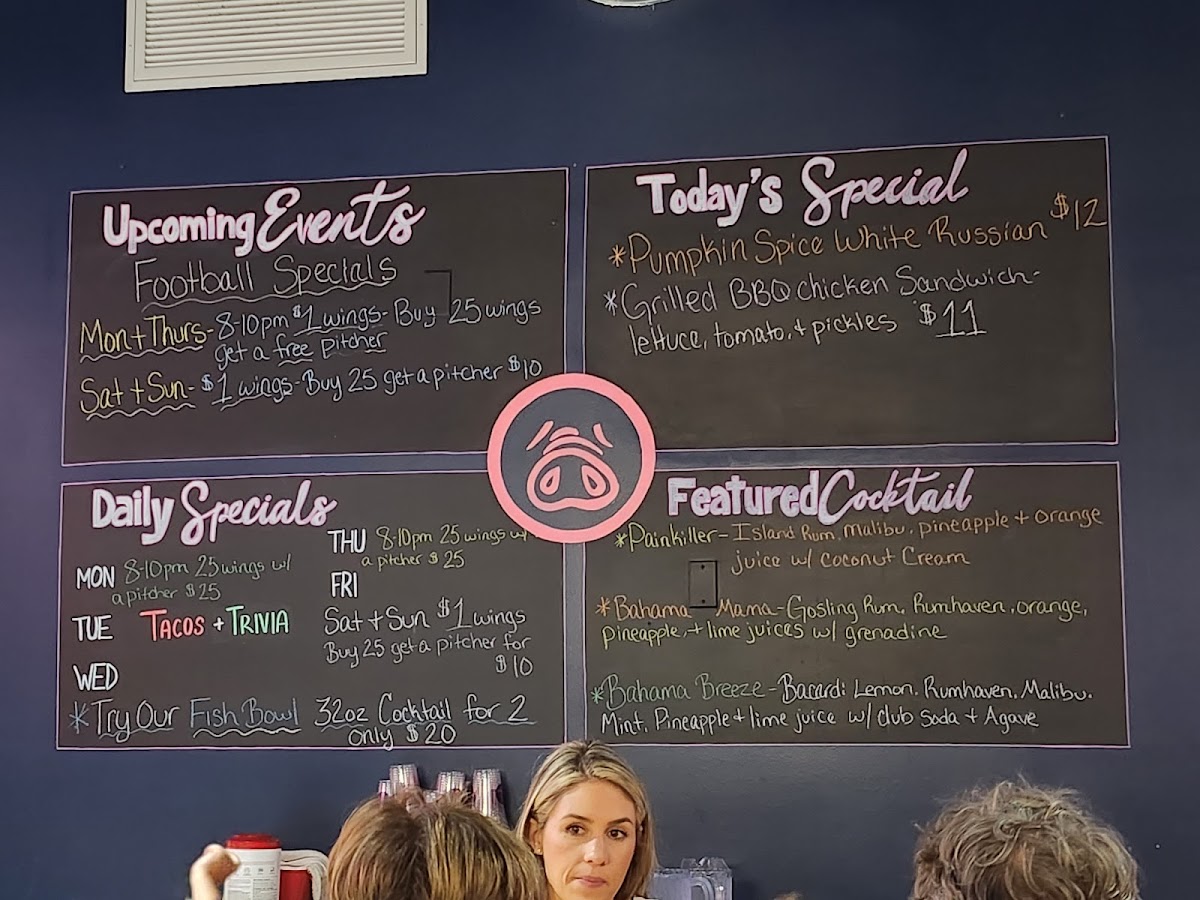 Upcoming Events
Football Specials
Mon + Thurs - 8-10pm $1 wings - Buy 25 wings
get a free pitcher
Sat + Sun - $1 wings - Buy 25 get a pitcher $10
Today's Special
*Pumpkin Spice White Russian $12
*Grilled BBQ chicken Sandwich-
lettuce, tomato, + pickles $11
Daily Specials
MON 8-10pm 25 wings w/
a pitcher $25
TUE TACOS + TRIVIA
WED
THU 8-10pm 25 wings w/
a pitcher $25
FRI
Sat + Sun $1 wings
Buy 25 get a pitcher for
$10
*Try Our Fish Bowl 32oz Cocktail for 2
only $20
Featured Cocktail
*Painkiller - Island Rum, Malibu, pineapple + orange
juice w/ coconut Cream
*Bahama Mama - Gosling Rum, Rumhaven, orange,
pineapple, + lime juices w/ grenadine
*Bahama Breeze - Bacardi Lemon, Rumhaven, Malibu,
Mint, Pineapple + lime juice w/ club Soda + Agave